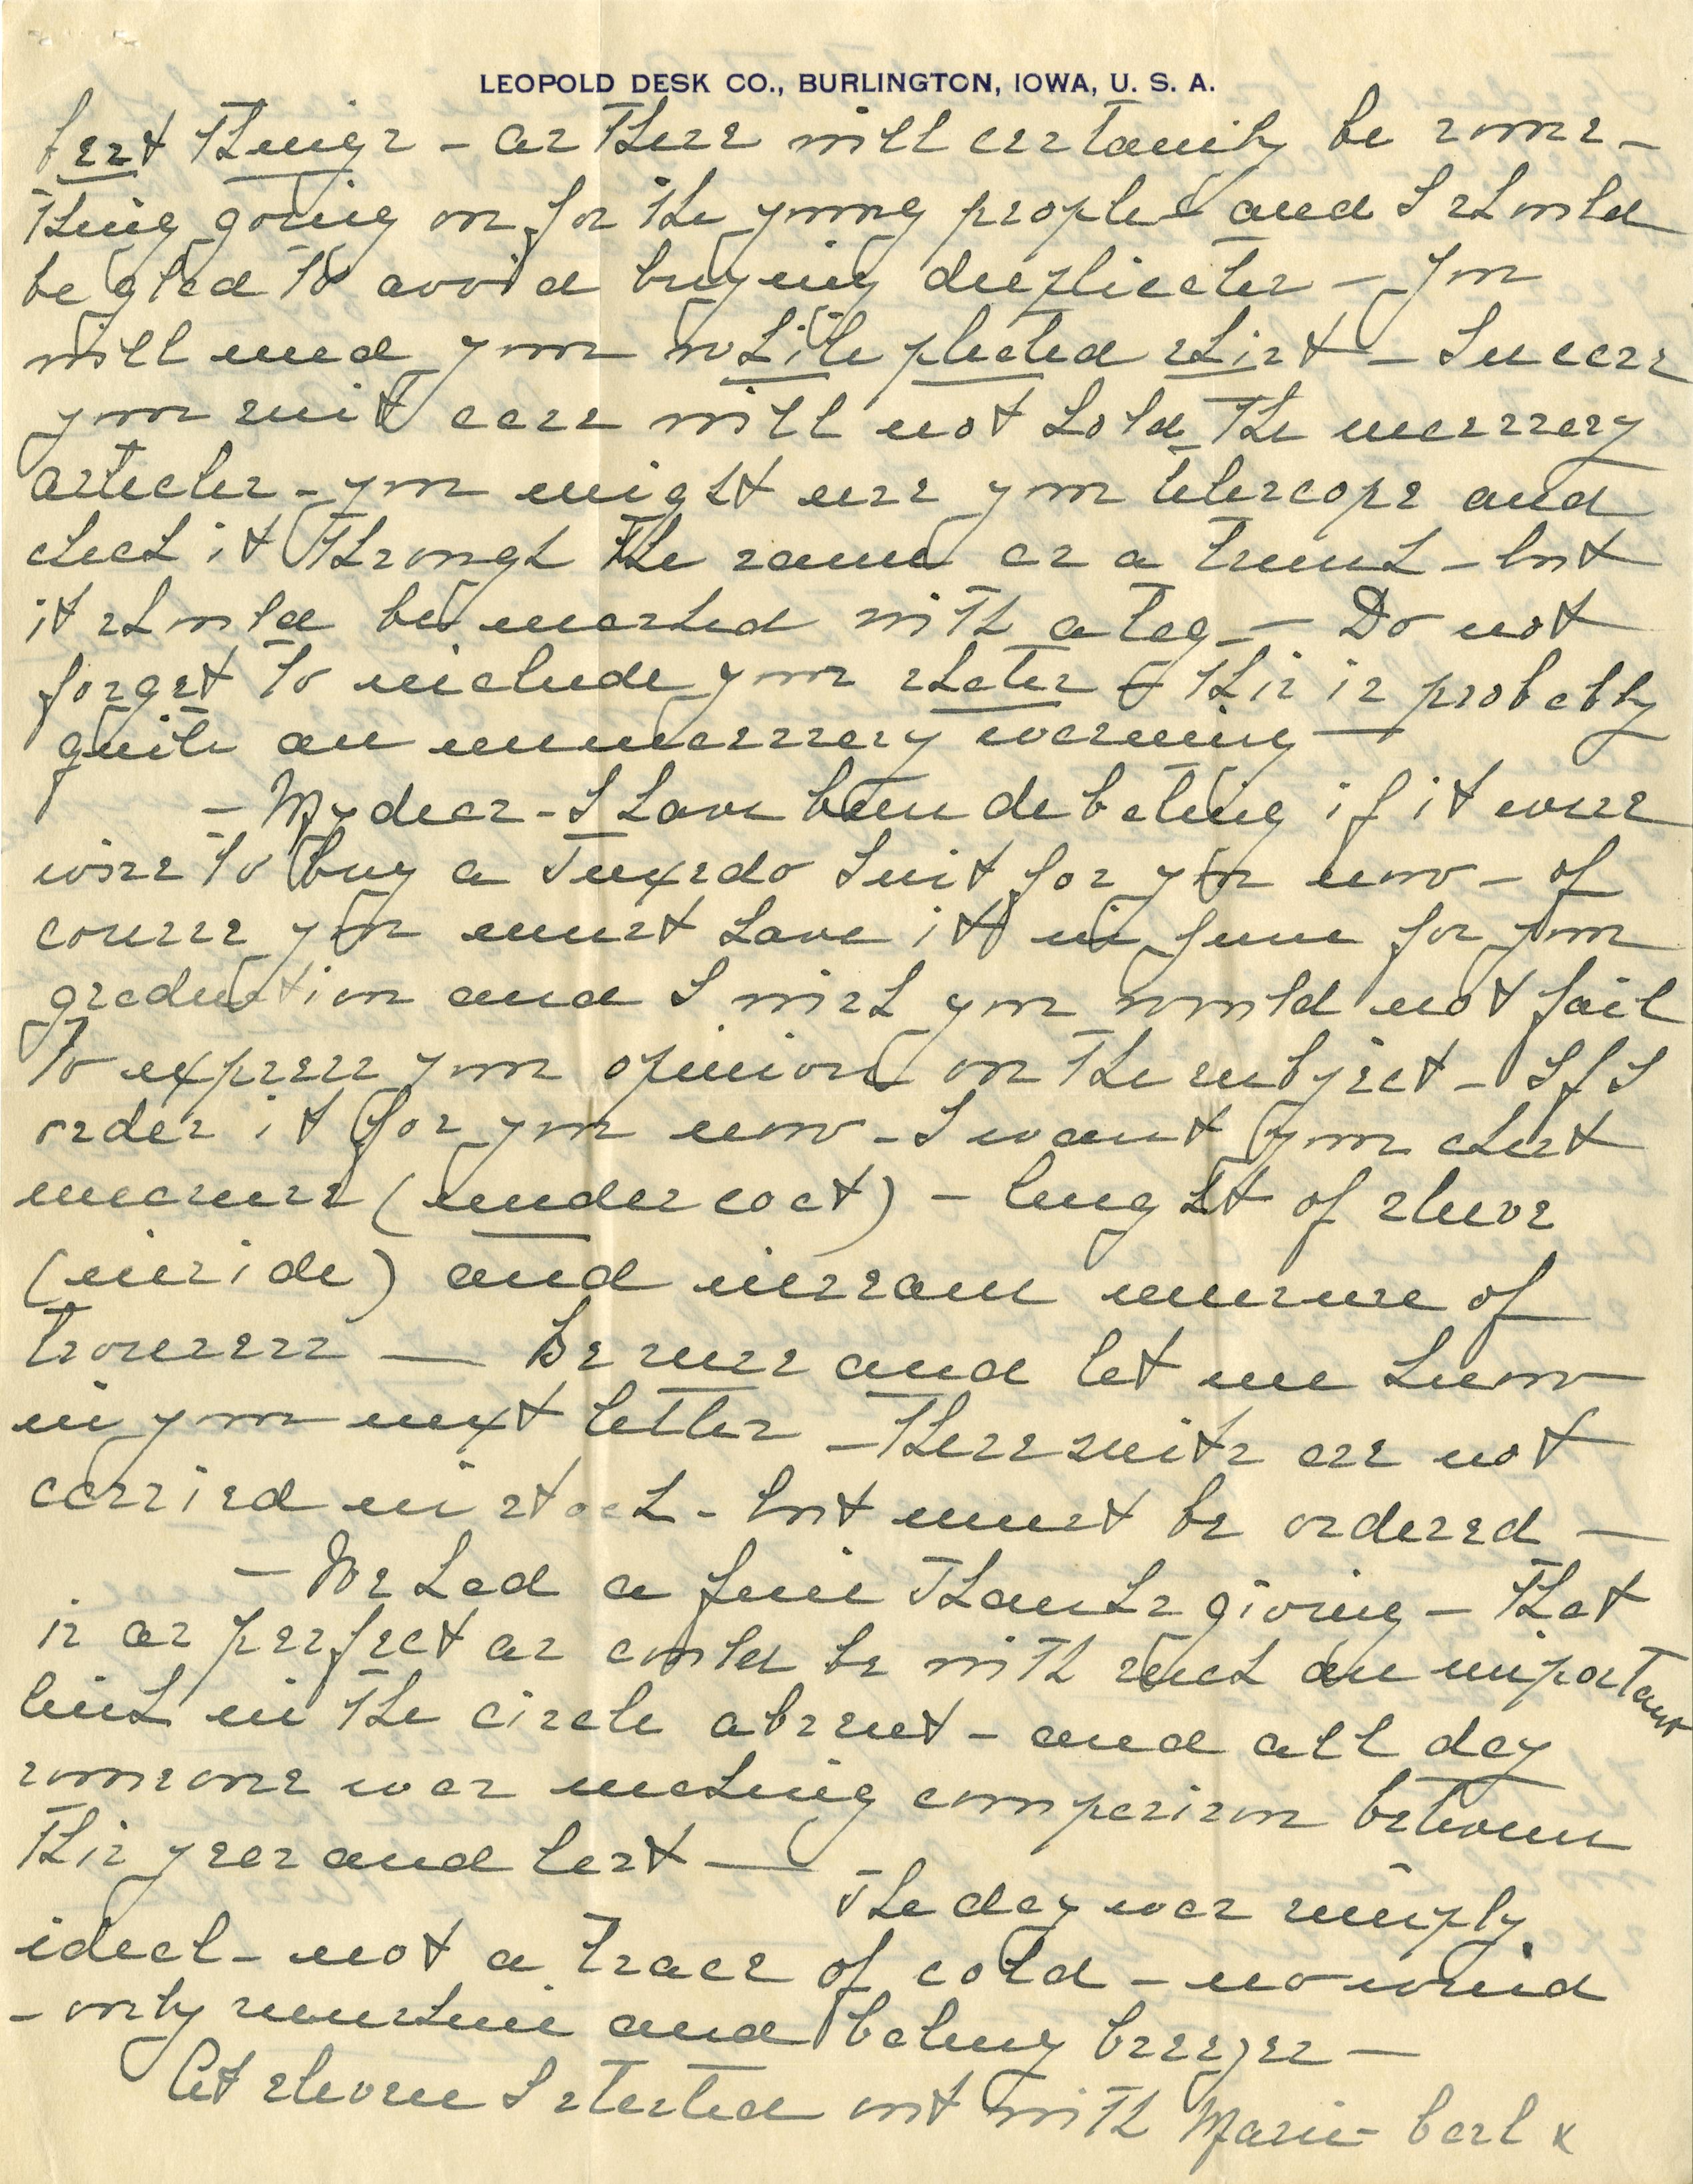 LEOPOLD DESK CO., BURLINGTON, IOWA, U. S. A.
best things - as there will certainly be some-
thing going on for the young people and I should
be glad to avoid buying duplicates - You
will need your white plaited shirt - In case
your suit case will not hold the necessary
articles - you might use your telescope and
check it through the same as a trunk - but
it should be marked with a tag - Do not
forget to include your skates - this is probably
quite an unnecessary warning -
- My dear - I have been debating if it were
wise to buy a Tuxedo Suit for you now - of
course you must have it in June for your
graduation and I wish you would not fail
to express your opinion on the subject - If I
order it for you now - I want your chest
measure (under coat) - lenght of sleeve
(inside) and inseam measure of
trousers - Be sure and let me know
in your next letter - These suits are not
carried in stock - but must be ordered -
- We had a fine Thanksgiving - That
is as perfect as could be with such an important
link in the circle absent - and all day
someone was making comparison between
this year and last -
The day was simply
ideal - not a trace of cold - no wind
- only sunshine and balmy breezes -
At eleven I started out with Marie - Carl x